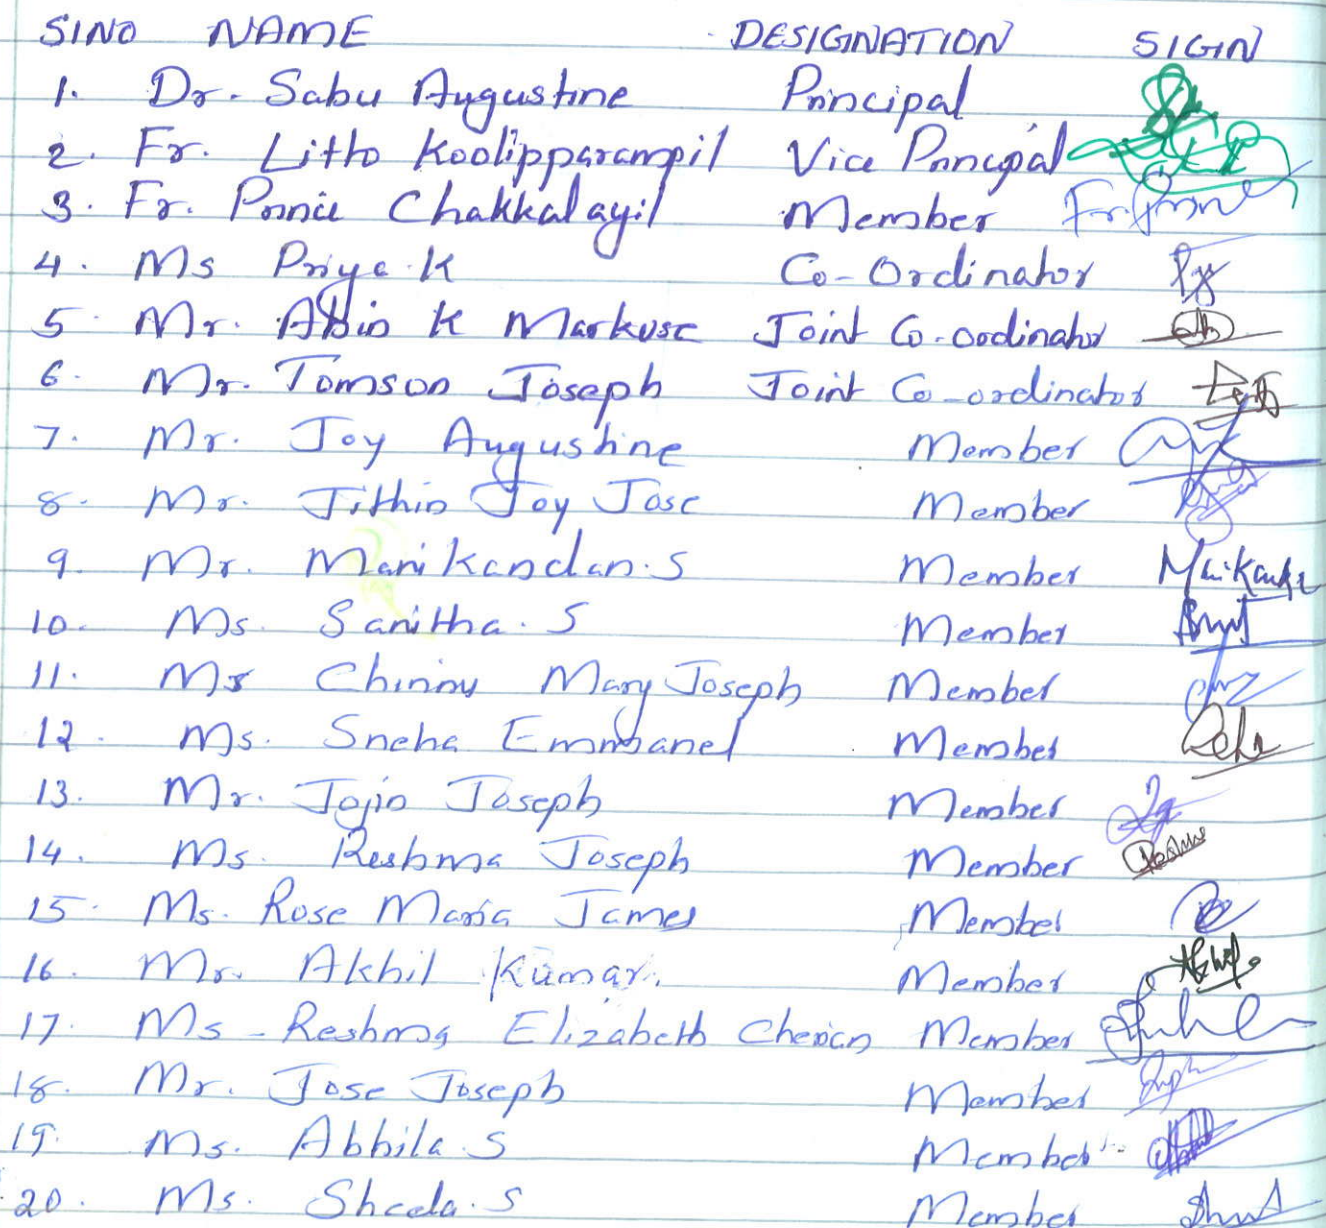 SINO NAME DESIGINATION SIGIN
1. Dr. Sabu Augustine Principal
2. Fr. Litto Koolipparampil Vice Principal
3. Fr. Prince Chakkalayil Member Fr. Prince
4. Ms Priya K Co-Ordinator
5. Mr. Abin K Markose Joint Co-ordinator
6. Mr. Tomson Joseph Joint Co-ordinator
7. Mr. Joy Augustine Member
8. Mr. Jithin Joy Jose Member
9. Mr. Manikandan. S Member
10. Ms. Sanitha. S Member
11. Ms Chinnu Mary Joseph Member
12. Ms. Sneha Emmanel Member
13. Mr. Jojin Joseph Member
14. Ms. Reshma Joseph Member
15. Ms. Rose Maria James Member
16. Mr. Akhil Kumar. Member
17. Ms - Reshma Elizabeth Cherian Member
18. Mr. Jose Joseph Member
19. Ms. Abhila. S Member
20. Ms. Sheela. S Member